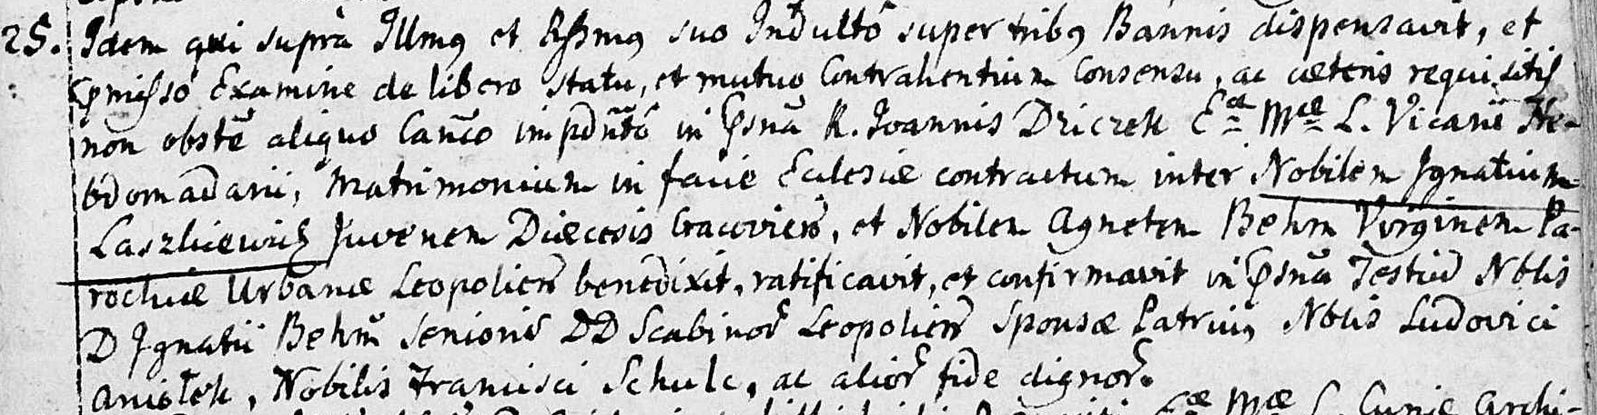 25. Idem qui supra Illmus et Rssmus suo Indulto super tribus Bannis dispensavit, et
pmisso Examine de libero statu, et mutuo Contrahentium Consensu, ac cæteris requisitis
non obste aliquo Canco impdnto in psna R. Joannis Driczek Ecæ Mæ L. Vicarii He-
bdomadarii, Matrimonium in facie Eclesiæ contractum inter Nobilem Ignatium
Juvenem Diæcesis Cracovien, et Nobilem Agnetem Behm Virginem Pa-
rochiæ Urbanæ Leopolien benedixit, ratificavit, et confirmavit in psna Testiu Nblis
D Ignatii Behm Senioris DD Scabinor Leopolien Sponsæ Patrui, Nblis Ludovici
Nobilis Francisci Schulc, ac alior fide dignor.
Mæ L. Curiæ Archi-